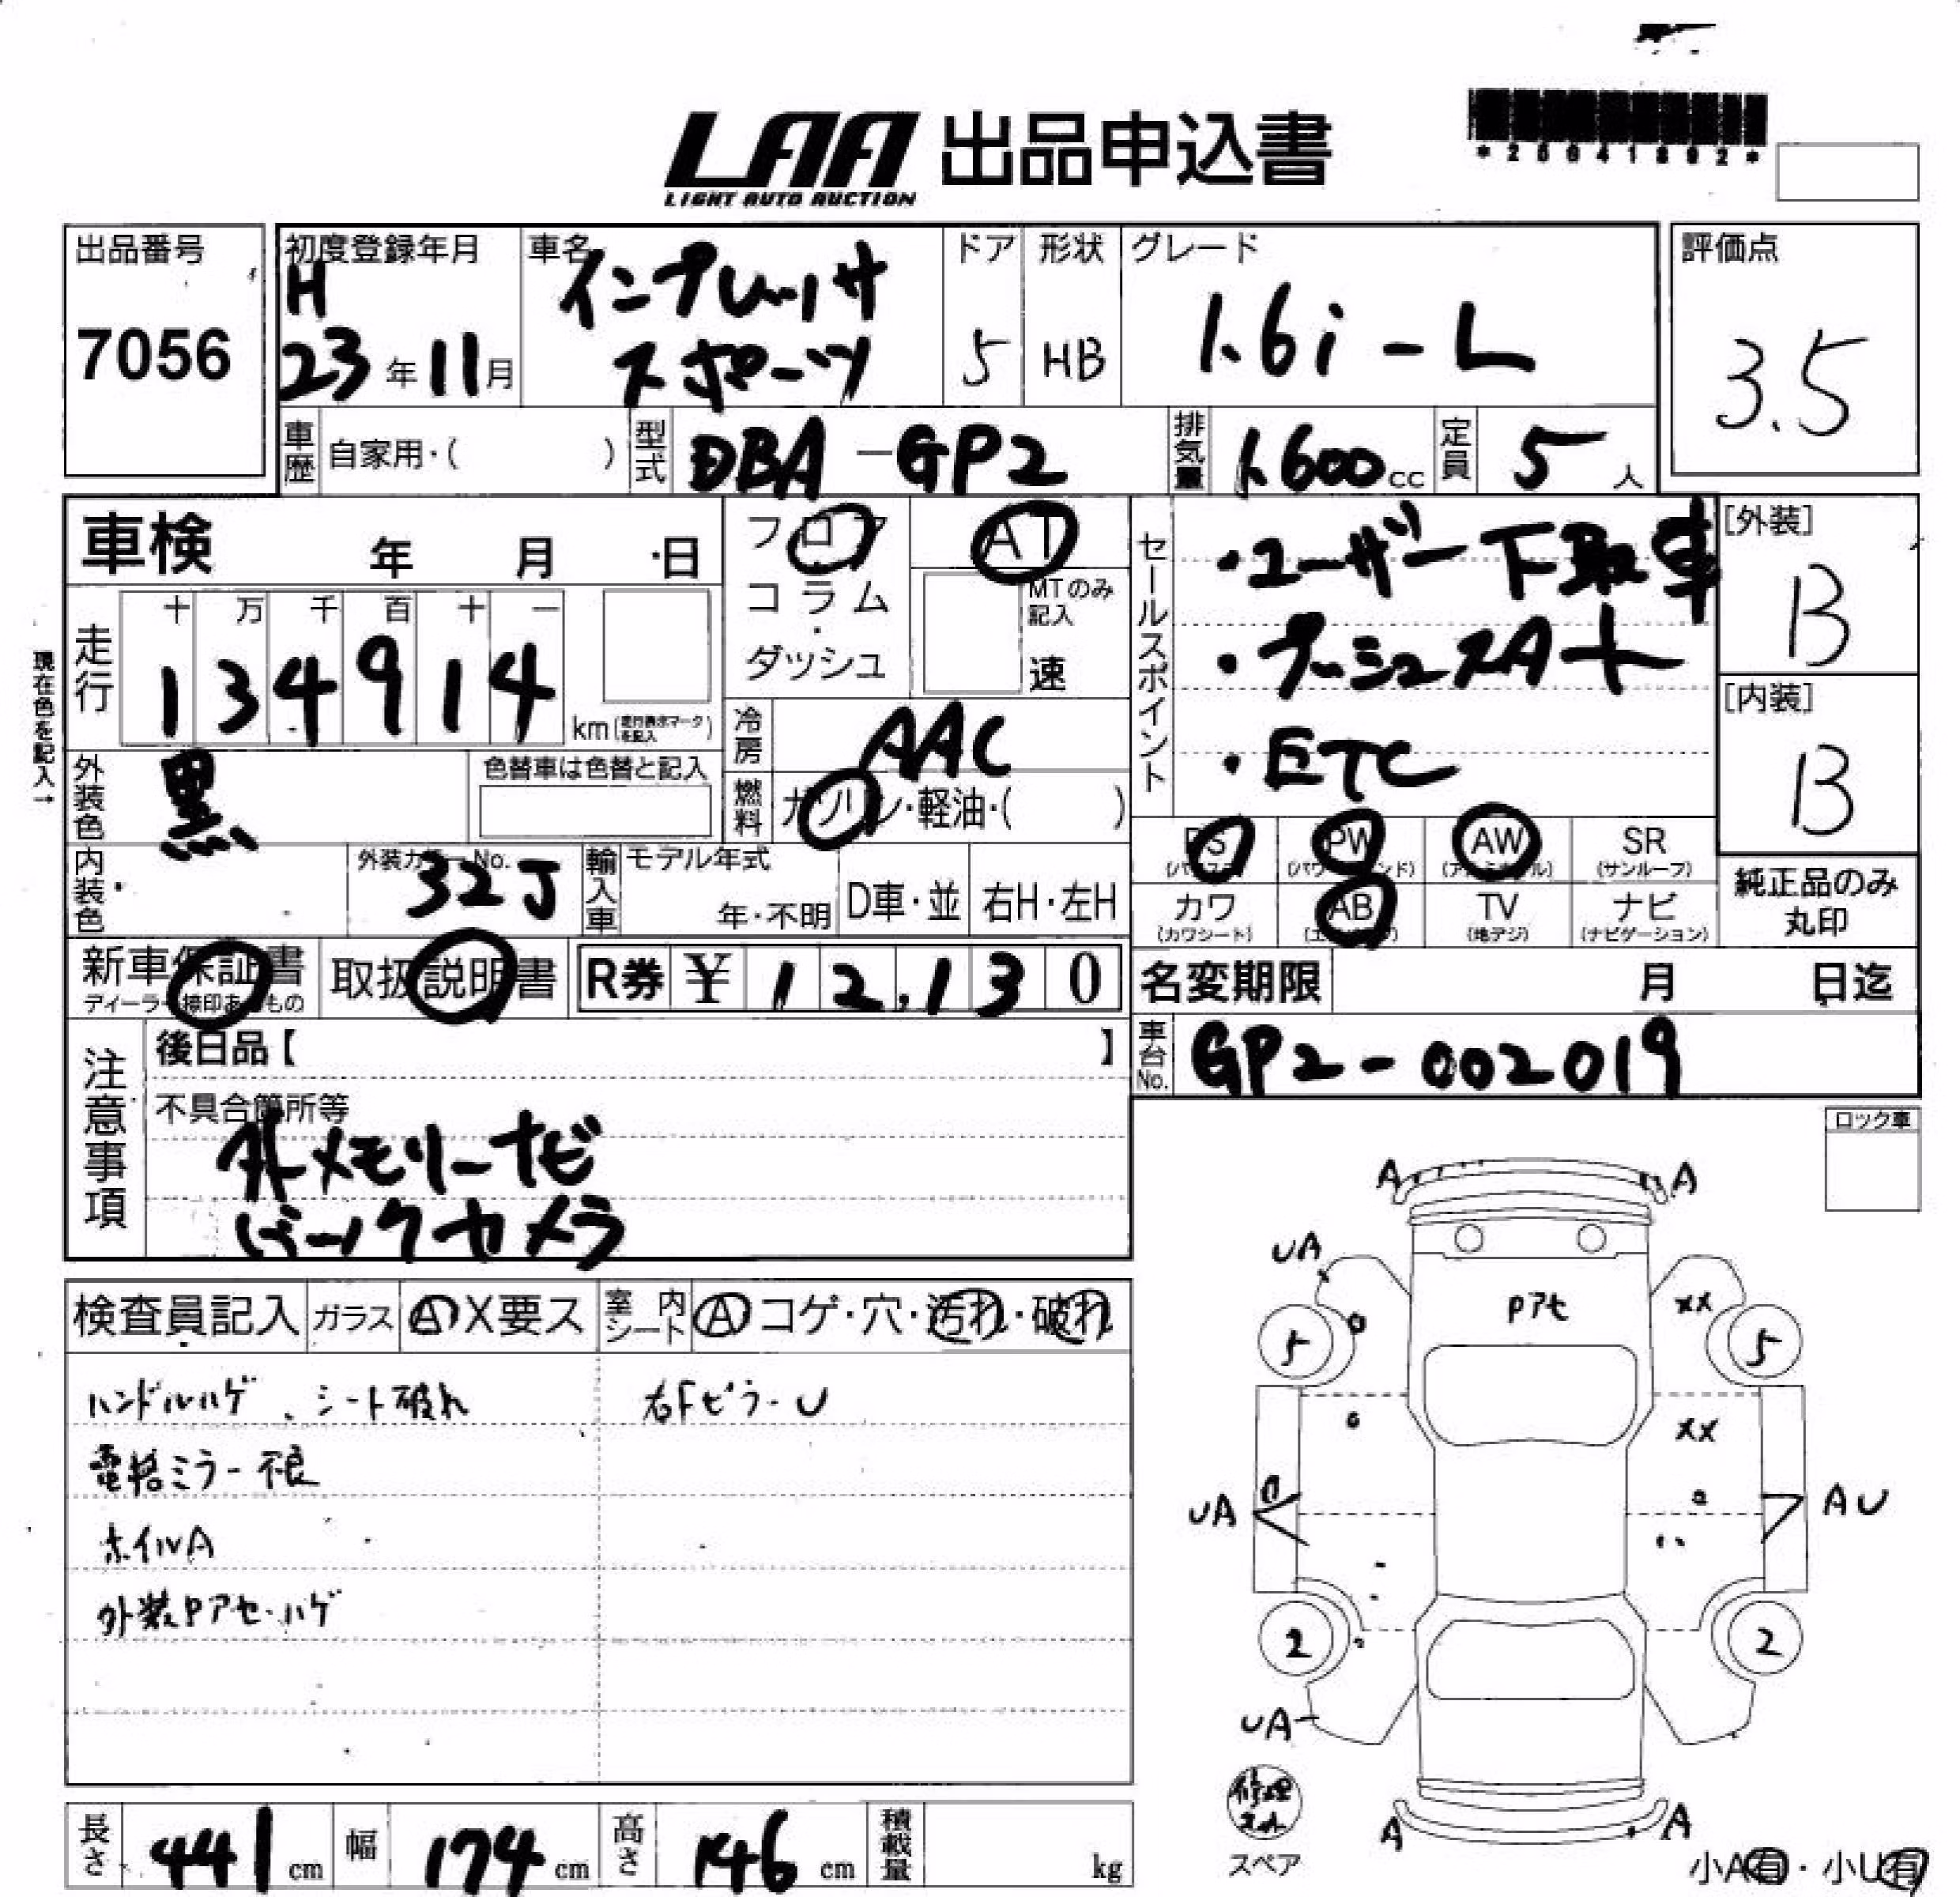 LAA 出品申込書
LIGHT AUTO AUCTION
*25041892*
出品番号
7056
初度登録年月
H
23年11月
車名
インプレッサ
スポーツ
ドア
5
形状
HB
グレード
1.6i-L
評価点
3.5
車歴 自家用・( )
型式 DBA-GP2
排気量 1.600cc
定員 5人
車検 年 月 日
フロア
コラム
・
ダッシュ
AT
MTのみ記入
速
セールスポイント
・ユーザー下取車
・プッシュスタート
・ETC
[外装]
B
[内装]
B
現在色を記入→
走行
十 万 千 百 十 一
1 3 4 9 1 4
km(走行表示マークを記入)
冷房 AAC
燃料 ガソリン・軽油・( )
外装色 黒
色替車は色替と記入
内装色
外装カラーNo.
32J
輸入車
モデル年式
年・不明
D車・並
右H・左H
PS
(パワステ)
PW
(パワーウインド)
AW
(アルミホイル)
SR
(サンルーフ)
カワ
(カワシート)
AB
(エアバッグ)
TV
(地デジ)
ナビ
(ナビゲーション)
純正品のみ
丸印
新車保証書
ディーラー捺印あるもの
取扱説明書
R券 ¥12,130
名変期限 月 日迄
車台No. GP2-002019
注意事項
後日品【 】
不具合箇所等
外メモリーナビ
バックカメラ
ロック車
検査員記入
ガラス
A X 要ス
室内シート
A コゲ・穴・汚れ・破れ
ハンドルハゲ、シート破れ
右FピラーU
電格ミラー不良
ホイルA
外装Pアセ・ハゲ
A
A
UA
Pアセ
XX
5
5
XX
UA
AU
2
2
UA
修理
スペア
A
A
小A有・小U有
長さ 441cm
幅 174cm
高さ 146cm
積載量 kg